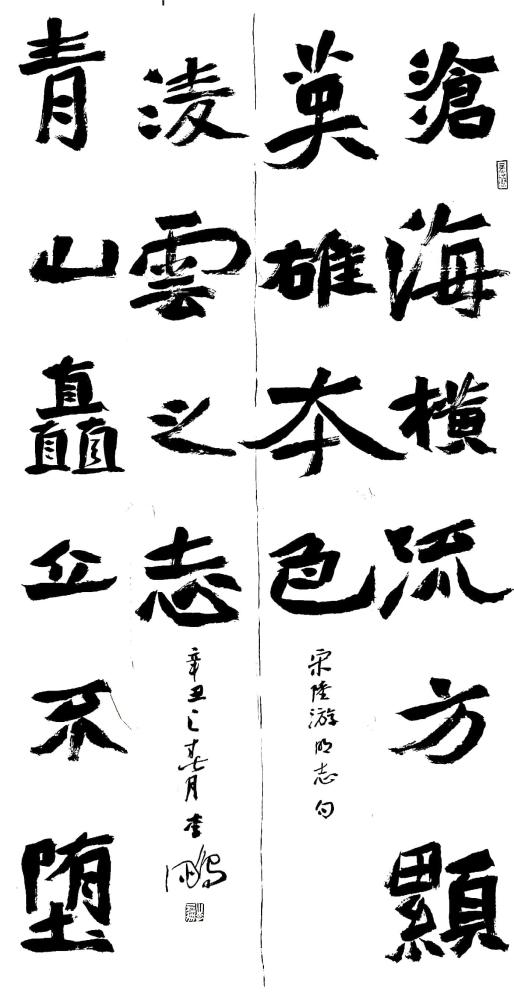 滄海横流方顯
英雄本色
宋陸游明志句
青山矗立不堕
淩雲之志
辛丑之春月李